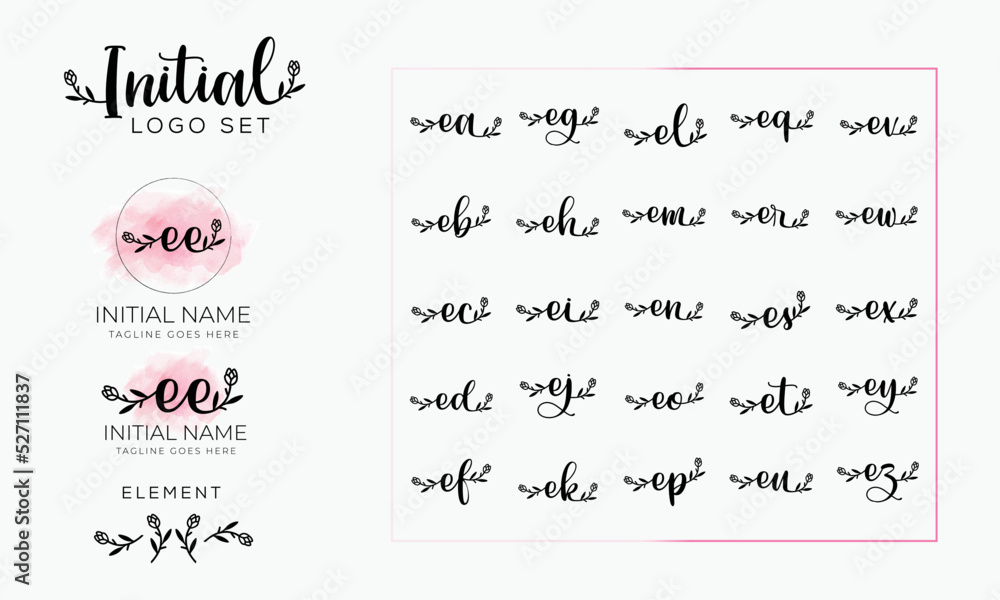 Initial
LOGO SET
ee
INITIAL NAME
TAGLINE GOES HERE
ee
INITIAL NAME
TAGLINE GOES HERE
ELEMENT
ea eg el eq ev
eb eh em er ew
ec ei en es ex
ed ej eo et ey
ef ek ep eu ez
Adobe Stock | #527111837